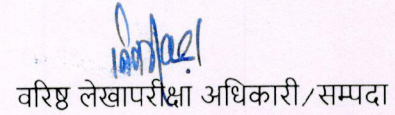 वरिष्ठ लेखापरीक्षा अधिकारी/सम्पदा